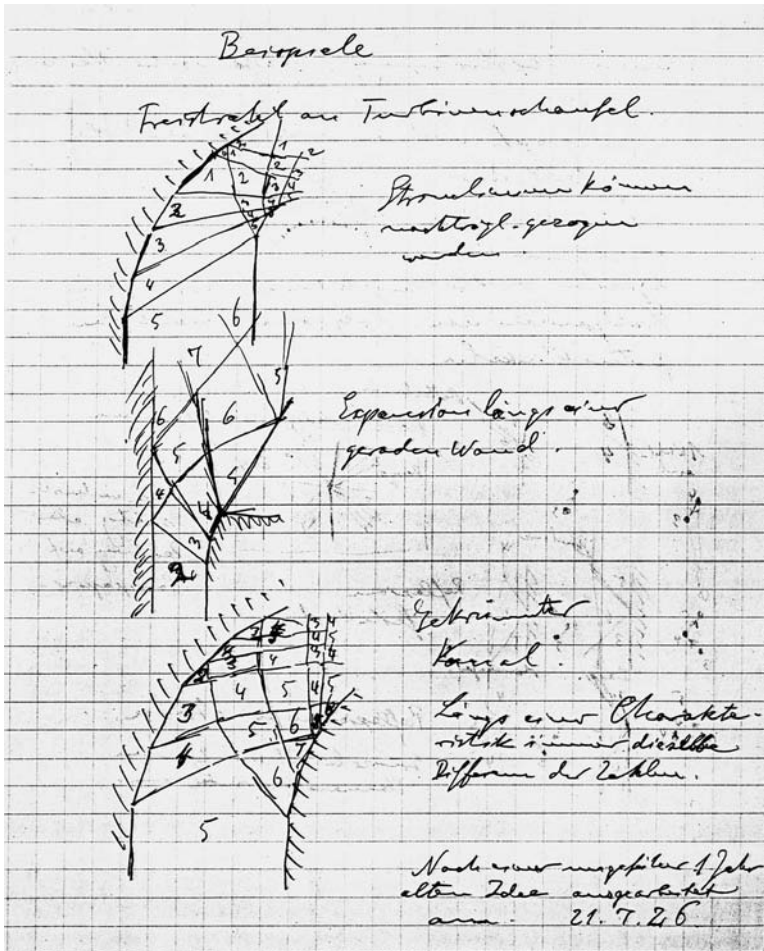 Beispiele
Freistrahl an Turbinenschaufel.
1
2
1
2
1
2
2
3
3
4
2
3
4
5
6
Stromlinien können
nachträgl. gezogen
werden.
7
5
6
6
5
4
4
3
Expansion längs einer
geraden Wand.
Gekrümmter
Kanal.
2
3
4
4
5
3
4
3
4
4
5
4
5
3
5
6
7
6
5
Längs einer Charakte-
ristik immer dieselbe
Differenz der Zahlen.
Nach einer ungefähr 1 Jahr
alten Idee ausgearbeitet
am. 21. 7. 26.